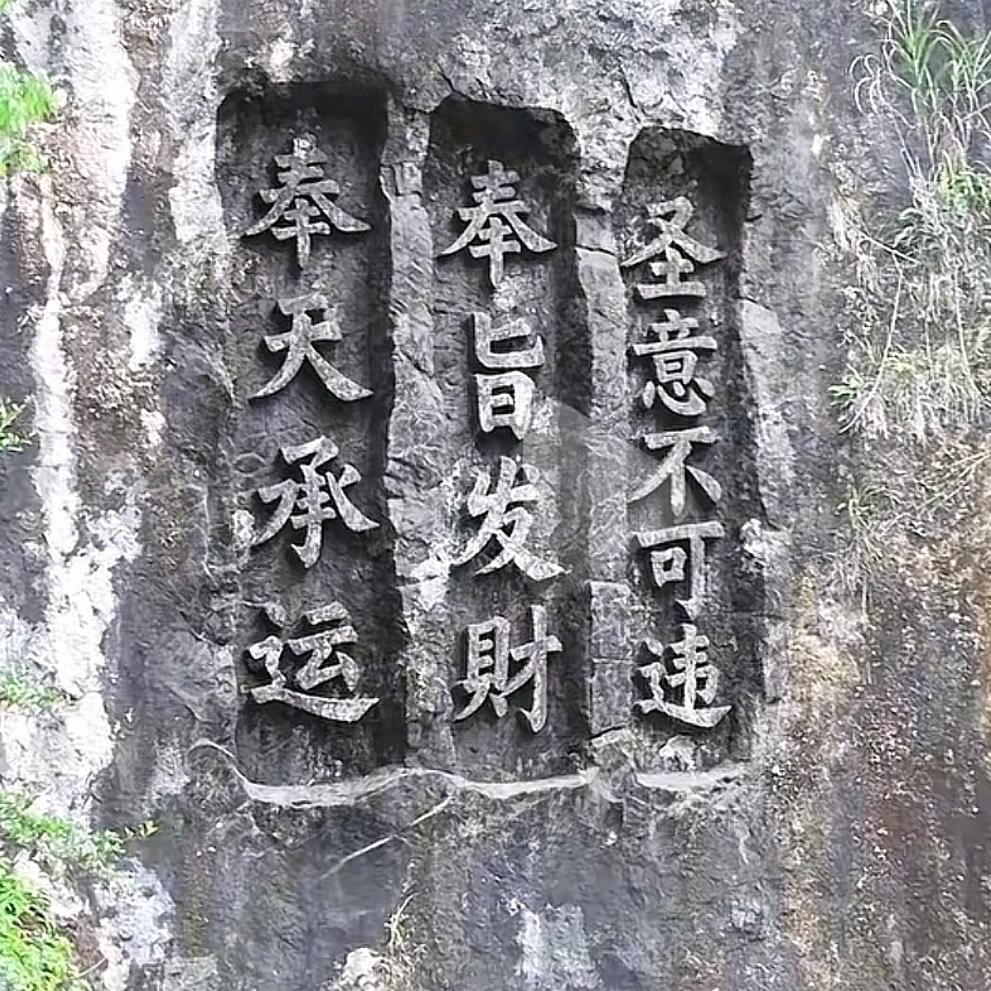 奉天承运
奉旨发财
圣意不可违